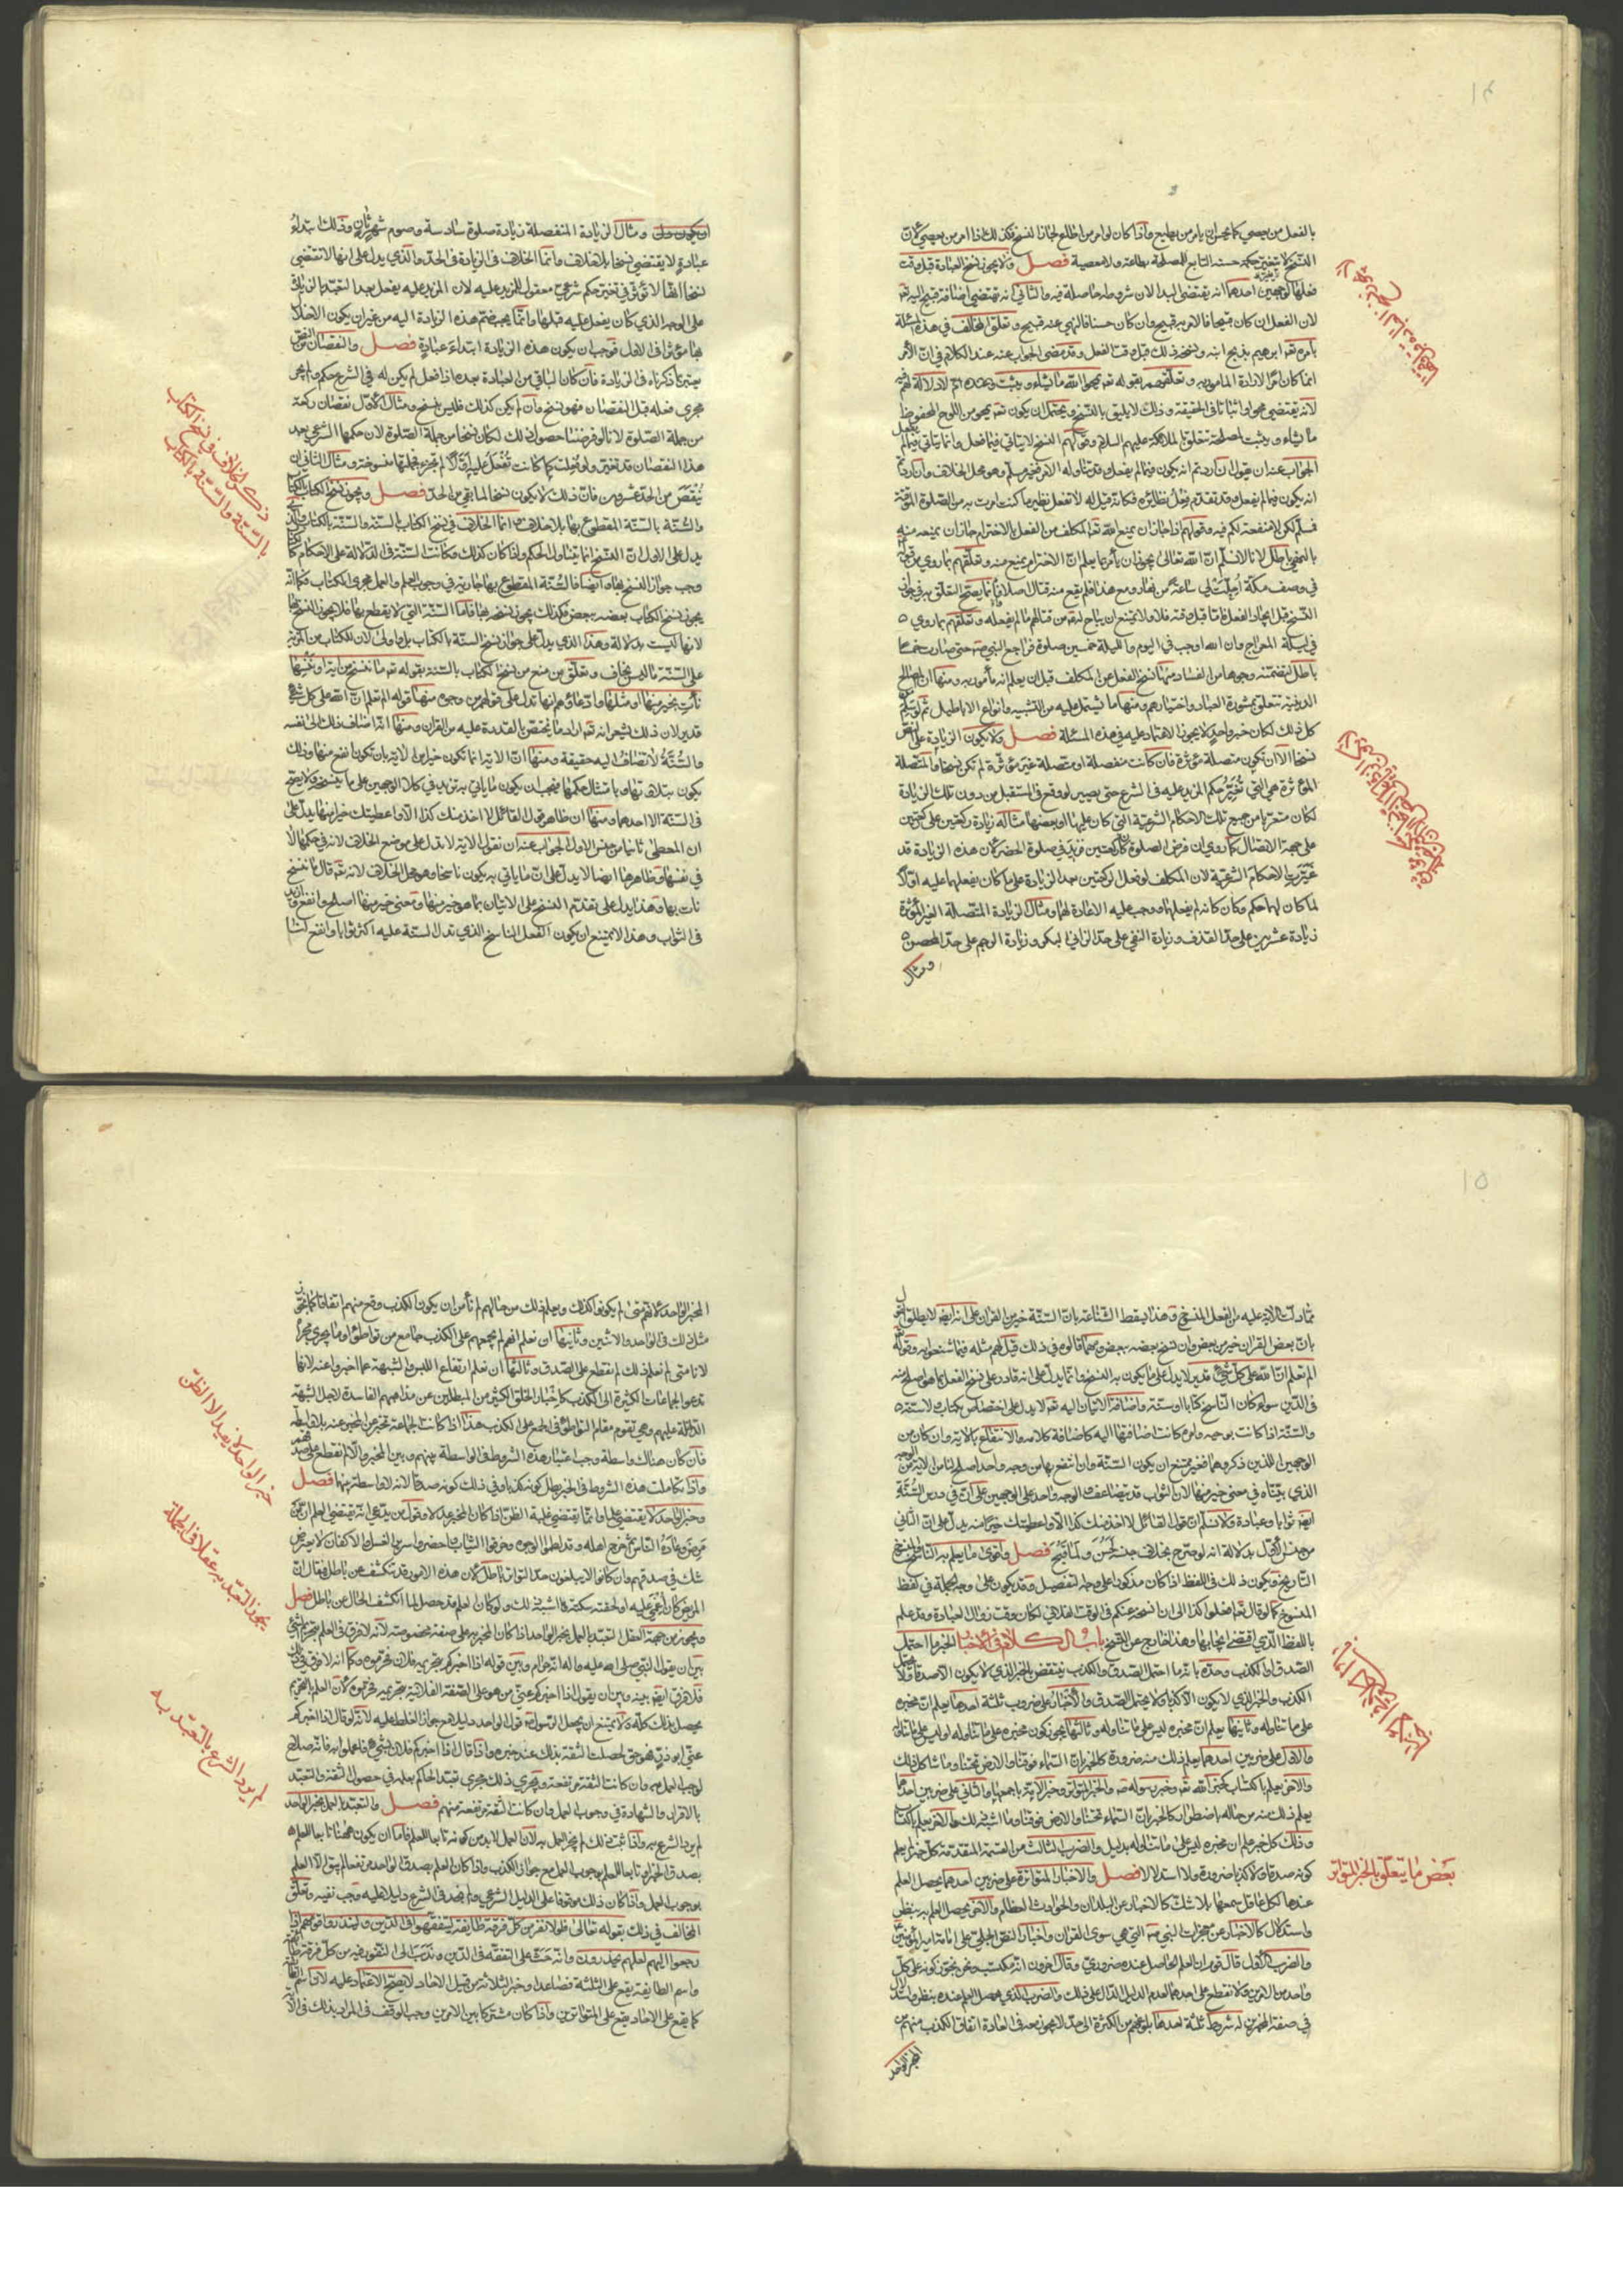 بالفعل من يعصي كما يحسن ان يامر من يطيع واذا كان لو امر من اطاع لجاز النسخ فكذلك اذا امر من يعصي لان
النسخ لا يتغير حكمه حسنه التابع للمصلحة بطاعة ولا معصية فصل ولا يجوز نسخ العبادة قبل وقت
فعلها لوجهين احدهما انه يقتضي البدا لان شروطه حاصلة فيه والثاني انه يقتضي اضافة قبيح اليه تعه
لان الفعل ان كان قبيحا فالامر به قبيح وان كان حسنا فالنهي عنه قبيح وتعلق المخالف في هذه المسئلة
بامره تعه ابرهيم بذبح ابنه ونسخه ذلك قبل وقت الفعل وقد مضى الجواب عنه عند الكلام في ان الامر
انما كان امرا لارادة المامور به وتعلقهم بقوله تعه يمحوا الله ما يشاء ويثبت وعنده ام لا دلالة لهم فيه
لانه يقتضي محوا واثباتا في الحقيقة وذلك لا يليق بالنسخ ويحتمل ان يكون تعه يمحو من اللوح المحفوظ
ما يشاء ويثبت لمصلحة تتعلق بالملائكة عليهم السلام وقولهم النسخ لا يتاتي فيما فعل وانما يتاتي فيما لم يفعل
الجواب عنه ان يقول ان اردتم انه يكون فيما لم يفعل وقد تناوله الامر فغير مسلم وهو محل الخلاف وان اردتم
انه يكون فيما لم يفعل وقد تقدم فعل نظائره فكانه قيل له لا تفعل نظير ما كنت امرت به من الصلوة الموقتة
فمسلم لكن لا منفعة لكم فيه وقولهم اذا جاز ان يمنع الله تعه المكلف من الفعل بالاخترام جاز ان يمنعه منه
بالنهي باطل لانا لا نسلم ان الله تعالى يجوز ان يامر بما يعلم ان الاخترام يمنع منه وتعلقهم بما روي من قوله
في وصف مكة احلت لي ساعة من نهار ومع هذا فلم يقع منه قتال اصلا انما يصح التعلق به في جواز
النسخ قبل ايجاد الفعل فاما قبل وقته فلا ولا يمتنع ان يباح له تعه من قتالهم ما لم يفعله وتعلقهم بما روي
في ليلة المعراج وان الله اوجب في اليوم والليلة خمسين صلوة فراجع النبي صه حتى صارت خمسا
باطل لتضمنه وجوها من الفساد منها نسخ الفعل عن المكلف قبل ان يعلم انه مامور به ومنها ان المصالح
الدينية تتعلق بمشورة العباد واختيارهم ومنها ما يشتمل عليه من التشبيه وانواع الاباطيل ثم لو سلم
كل ذلك لكان خبر واحد لا يجوز الاعتماد عليه في هذه المسئلة فصل ولا يكون الزيادة على النص
نسخا الا ان تكون متصلة مؤثرة فان كانت منفصلة او متصلة غير مؤثرة لم تكن نسخا والمتصلة
المؤثرة هي التي تغير حكم المزيد عليه في الشرع حتى يصير لو وقع في المستقبل من دون تلك الزيادة
لكان متعريا من جميع تلك الاحكام الشرعية التي كان عليها او بعضها مثاله زيادة ركعتين على ركعتين
على جهة الاتصال كما روي ان فرض الصلوة كان ركعتين فزيد في صلوة الحضر لان هذه الزيادة قد
غيرت الاحكام الشرعية لان المكلف لو فعل الركعتين بعد الزيادة على ما كان يفعلهما عليه اولا
لما كان لهما حكم وكان كانه لم يفعلهما ووجب عليه الاعادة لهما ومثال الزيادة المتصلة الغير المؤثرة
زيادة عشرين على حد القذف وزيادة النفي على حد الزاني البكر وزيادة الرجم على حد المحصن
ومثال
ومثال الزيادة المنفصلة زيادة صلوة سادسة وصوم شهر ثان وذلك ابتداء
عبادة لا يقتضي نسخا بلا خلاف وانما الخلاف في الزيادة في الحد والذي يدل على انها لا تقتضي
نسخا انها لا تؤثر في تغير حكم شرعي معقول للمزيد عليه لان المزيد عليه يفعل بعد التعبد بالزيادة
على الوجه الذي كان يفعل عليه قبلها وانما يجب ضم هذه الزيادة اليه من غير ان يكون الاخلال
بها مؤثرا في الاول فوجب ان يكون هذه الزيادة ابتداء عبادة فصل والنقصان من النص
يعتبر بما ذكرناه في الزيادة فان كان الباقي من العبادة بعده اذا فعل لم يكن له في الشرع حكم ولم يجر
مجرى فعله قبل النقصان فهو نسخ وان لم يكن كذلك فليس بنسخ ومثال الاول نقصان ركعة
من جملة الصلوة لانا لو فرضنا حصول ذلك لكان نسخا من جملة الصلوة لان حكمها الشرعي بعد
هذا النقصان قد تغير ولو فعلت كما كانت تفعل عليه اولا لم تجز فجملتها منسوخة ومثال الثاني ان
ينقص من الحد عشرون فان ذلك لا يكون نسخا لما بقي من الحد فصل ويجوز نسخ الكتاب بالكتاب
والسنة بالسنة المقطوع بها بلا خلاف وانما الخلاف في نسخ الكتاب بالسنة والسنة بالكتاب والذي
يدل على الاول ان النسخ انما يتناول الحكم واذا كان كذلك وكانت السنة في الدلالة على الاحكام كالقرآن
وجب جواز النسخ بها وايضا فالسنة المقطوع بها جارية في وجوب العلم والعمل مجرى الكتاب فكما انه
يجوز نسخ الكتاب بعضه ببعض فكذلك يجوز نسخه بها فاما السنة التي لا يقطع بها فلا يجوز النسخ بها
لانها ليست بدلالة وهذا الذي يدل على جواز نسخ السنة بالكتاب بل اولى لان للكتاب من المزية
على السنة ما ليس بخاف وتعلق من منع من نسخ الكتاب بالسنة بقوله تعه ما ننسخ من اية او ننسها
نات بخير منها او مثلها وادعاؤهم انها تدل على قولهم من وجوه منها قوله الم تعلم ان الله على كل شيء
قدير لان ذلك يشعر انه تعه اراد ما يختص بالقدرة عليه من القران ومنها انه اضاف ذلك الى نفسه
والسنة لا تضاف اليه حقيقة ومنها ان الاية انما تكون خيرا من الاية بان تكون انفع منها وذلك
يكون بتلاوتها وبامتثال حكمها فيجب ان يكون ما ياتي به تزيد في كلا الوجهين على ما ينسخه ولا يصح
في السنة الا احدهما ومنها ان ظاهر قول القائل لا اخذ منك كذا الا واعطيتك خيرا منه يدل على
ان المعطى ثانيا من جنس الاول الجواب عنه ان نقول الاية لا تدل على موضع الخلاف لانه في حكمها لا
في نفسها وظاهرها ايضا لا يدل على ان ما ياتي به يكون ناسخا وهو محل الخلاف لانه تعه قال ما ننسخ
نات بها وهذا يدل على تقدم النسخ على الاتيان بما هو خير منها ومعنى خير منها اصلح وانفع وازيد
في الثواب وهذا لا يمتنع ان يكون الفعل الناسخ الذي تدل السنة عليه اكثر ثوابا وانفع لنا
ذكر الخلاف في نسخ الكتاب
بالسنة والسنة بالكتاب
مما دلت الاية عليه من الفعل المنسوخ وهذا يسقط الشناعة بان السنة خير من القران على انه ايضا لا يطلق القول
بان بعض القران خير من بعض وان نسخ بعضه ببعض ومهما قالوه في ذلك قيل لهم مثله فيما شنعوا به وقوله
الم تعلم ان الله على كل شيء قدير لا يدل على ما يكون به النسخ وانما يدل على انه قادر على نسخ الفعل بما هو اصلح منه
في الدين سواء كان الناسخ كتابا او سنة واضافة الاتيان اليه تعه لا يدل على اختصاص بكتاب ولا سنة
والسنة اذا كانت بوحيه وامره كانت اضافتها اليه كاضافة كلامه والانتفاع بالاية وان كان من
الوجهين اللذين ذكروهما فغير ممتنع ان يكون السنة وان انتفع بها من وجه واحد اصلح لنا من الاية من الوجه
الذي بيناه في معنى خير منها لان الثواب قد يتضاعف والوجه واحد على الوجهين على ان في درس السنة
ايضا ثوابا وعبادة ولا نسلم ان قول القائل لا اخذ منك كذا الا واعطيتك خيرا منه يدل على ان الثاني
من جنس الاول بدلالة انه لو صرح بخلاف جنسه لحسن ولما قبح فصل واقوى ما يعلم به الناسخ والمنسوخ
التاريخ فيكون ذلك في اللفظ اذا كان مذكورا على وجه التفصيل وقد يكون على وجه الجملة في لفظ
المنسوخ كما لو قال تعه افعلوا كذا الى ان انسخه عنكم في الوقت الفلاني لكان وقت زوال العبادة وقد علم
باللفظ الذي اقتضى ايجابها وهذا خارج عن النسخ باب الكلام في الاخبار الخبر ما احتمل
الصدق او الكذب وحده بانه ما احتمل الصدق والكذب ينتقض بالخبر الذي لا يكون الا صدقا ولا يحتمل
الكذب والخبر الذي لا يكون الا كذبا ولا يحتمل الصدق والاخبار على ضروب ثلثة احدها يعلم ان مخبره
على ما تناوله وثانيها يعلم ان مخبره ليس على ما تناوله وثالثها يجوز كون مخبره على ما تناوله او ليس على ما تناوله
والاول على ضربين احدهما يعلم ذلك منه ضرورة كالخبر بان السماء فوقنا والارض تحتنا وما شاكل ذلك
والاخر يعلم باكتساب كخبر الله تعه وخبر رسوله صه والخبر المتواتر وخبر الامة باجمعها واما الثاني على ضربين احدهما
يعلم ذلك منه من حاله باضطرار كالخبر بان السماء تحتنا والارض فوقنا وما اشبه ذلك والاخر يعلم باكتساب
وذلك كل خبر علم ان مخبره ليس على ما تناوله بدليل والضرب الثالث من القسمة المتقدمة كل خبر لم يعلم
كونه صدقا ولا كذبا ضرورة ولا استدلالا فصل والاخبار المتواترة على ضربين احدهما يحصل العلم
عندها لكل عاقل سمعها بلا شك كالاخبار عن البلدان والحوادث العظام والاخر يحصل العلم به بنظر
واستدلال كالاخبار عن معجزات النبي صه التي هي سوى القران واخبار النص الجلي على امامة امير المؤمنين
والضرب الاول قال قوم ان العلم الحاصل عنده ضروري وقال اخرون انه مكتسب ونحن نجوز كونه على كل
واحد من الامرين ولا نقطع على احدهما لعدم الدليل الدال على ذلك والضرب الذي يحصل العلم عنده بنظر واستدلال
في صفة المخبرين له شروط ثلثة احدها بلوغهم من الكثرة الى حد لا يجوز معه في العادة اتفاق الكذب منهم عن
المخبر الواحد
بعض ما يتعلق بالخبر المتواتر
المخبر الواحد لانهم متى لم يكونوا كذلك ويعلم ذلك من حالهم لم نأمن ان يكون الكذب وقع منهم اتفاقا كما يجوز
مثل ذلك في الواحد والاثنين وثانيها ان نعلم انهم لم يجمعهم على الكذب جامع من تواطؤ او ما يجري مجراه
لانا متى لم نعلم ذلك لم نقطع على الصدق وثالثها ان نعلم ارتفاع اللبس والشبهة عما اخبروا عنه لانها
تدعو الجماعات الكثيرة الى الكذب كاخبار الخلق الكثير من المبطلين عن مذاهبهم الفاسدة لاجل الشبهة
الداخلة عليهم وهي تقوم مقام التواطؤ في الجمع على الكذب هذا اذا كانت الجماعة تخبر عن المخبر عنه بلا واسطة
فان كان هناك واسطة وجب اعتبار هذه الشروط في الواسطة بينهم وبين المخبر والا لم نقطع على صدقهم
واذا تكاملت هذه الشروط في الخبر بطل كونه كذبا وفي ذلك كونه صدقا لانه لا واسطة بينهما فصل
وخبر الواحد لا يقتضي علما وانما يقتضي غلبة الظن اذا كان المخبر عدلا وقول من يدعي انه يقتضي العلم ان من
مرض وعاده الناس ثم خرج اهله وقد لطموا الوجوه وخرقوا الثياب واحضروا سرير الغسل والاكفان لا يعترض
شك في صدقهم وان كانوا لا يبلغون حد التواتر باطل لان هذه الامور قد تنكشف عن باطل فيقال ان
المريض كان اغمي عليه او لحقته سكتة وما اشبه ذلك ولو كان العلم قد حصل لما انكشف الحال عن باطل فصل
ويجوز من جهة العقل التعبد بالعمل بخبر الواحد اذا كان المخبر به على صفة مخصوصة لانه لا فرق في العلم بتحريم الشيء
بين ان يقول النبي صلى الله عليه واله انه حرام وبين قوله اذا اخبركم بتحريمه فلان فحرموه وكما انه لا فرق في ذلك
فلا فرق ايضا بينه وبين ان يقول اذا اخبركم عني من هو على الصفة الفلانية بتحريمه فحرموه لان العلم بالتحريم
يحصل بذلك كله ولا يمتنع ان يجعل الرسول قول الواحد دليلا مع جواز الغلط عليه لانه لو قال اذا اخبركم
عني ابو ذر فهو حق لحصلت الثقة بذلك عند خبره واذا قال اذا اخبركم فلان بشيء فاعملوا به فانه صلاح
لوجب العمل به وان كانت الثقة مرتفعة ويجري ذلك مجرى تعبد الحاكم بعلمه في حصول الثقة والتعبد
بالاقرار والشهادة في وجوب العمل وان كانت الثقة مرتفعة منهم فصل والتعبد بالعمل بخبر الواحد
لم يرد الشرع به واذا ثبت ذلك لم يجز العمل به لان العمل لا بد من كونه تابعا للعلم فاما ان يكون ههنا تابعا للعلم
بصدق الخبر او تابعا للعلم بوجوب العمل مع جواز الكذب واذا كان العلم بصدق الواحد مرتفعا لم يبق الا العلم
بوجوب العمل واذا كان ذلك موقوفا على الدليل الشرعي ولم نجد في الشرع دليلا عليه وجب نفيه وتعلق
المخالف في ذلك بقوله تعالى فلولا نفر من كل فرقة طايفة ليتفقهوا في الدين ولينذروا قومهم اذا
رجعوا اليهم لعلهم يحذرون وانه حث على التفقه في الدين وندب الى النفور فيه من كل فرقة طائفة
واسم الطايفة يقع على الثلثة فصاعدا وخبر الثلاثة من قبيل الاحاد لا يصح الاعتماد عليه لان اسم الطائفة
كما يقع على الاحاد يقع على المتواترين واذا كان مشتركا بين الامرين وجب الوقف في المراد بذلك في الاية
خبر الواحد لا يفيد الا الظن
يجوز التعبد به عقلا في الجملة
لم يرد الشرع بالتعبد به